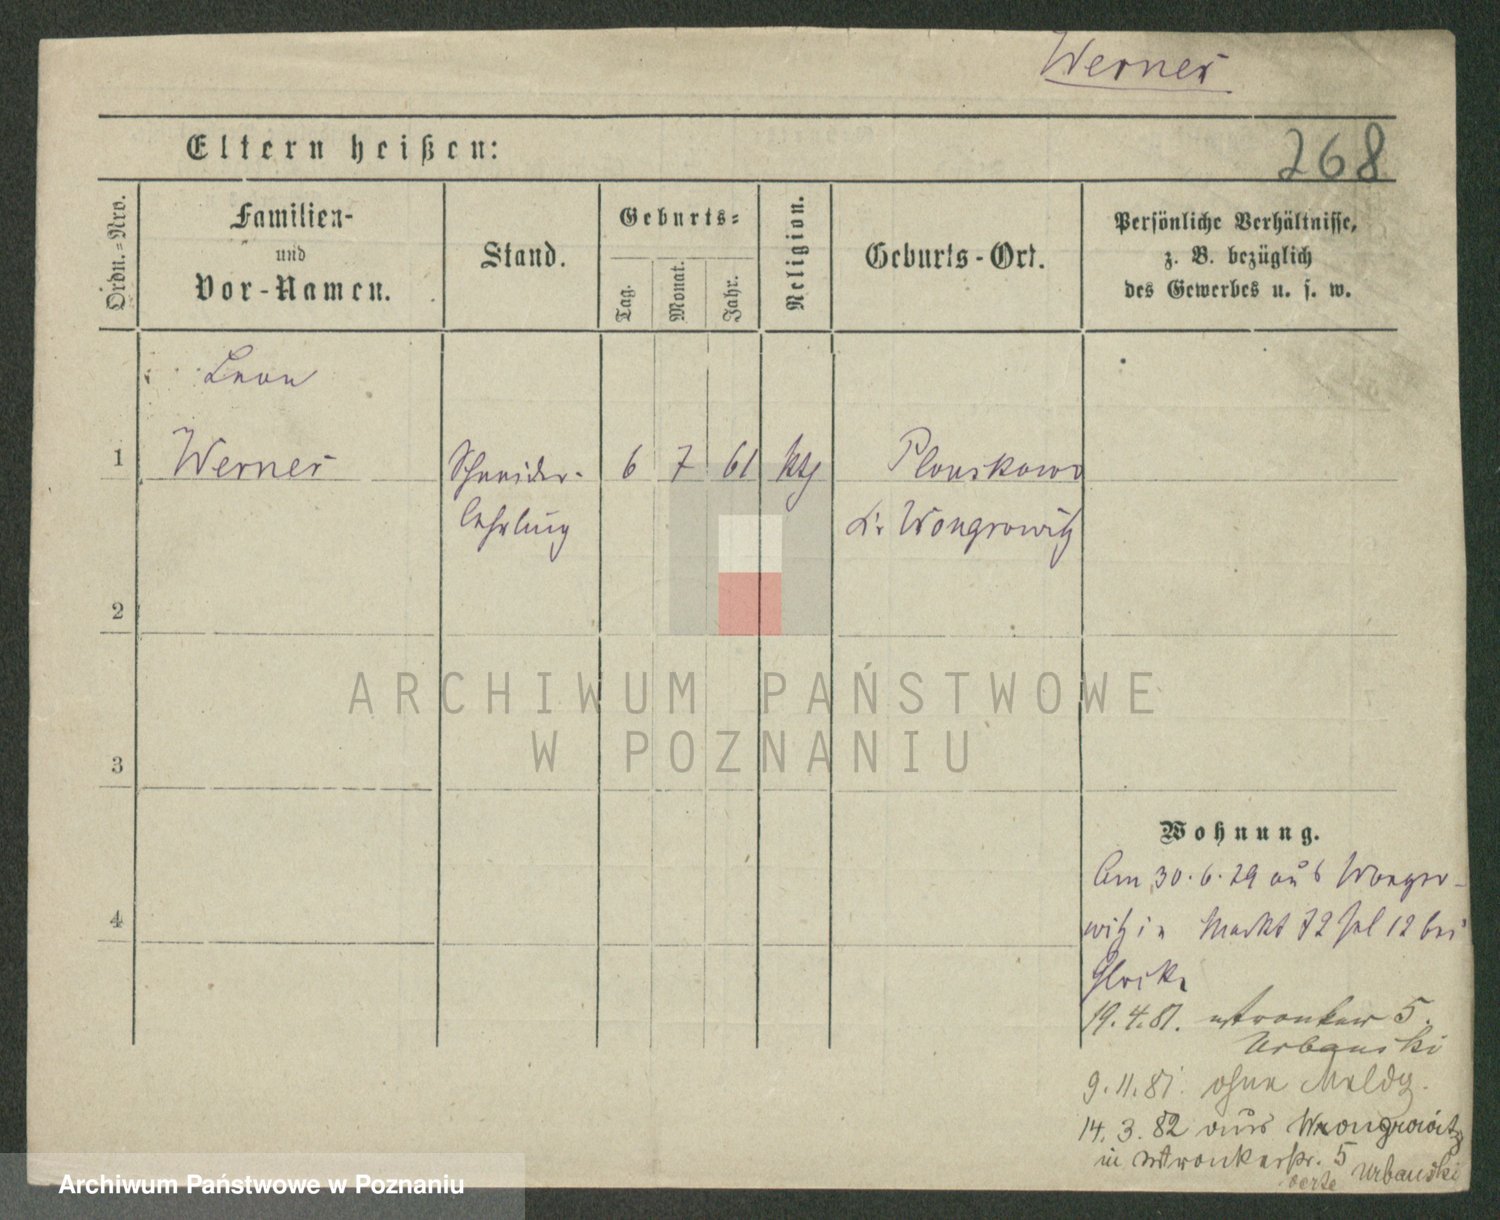 Werner
268
Eltern heißen:
Ordn.=Nro.
Familien-
und
Vor-Namen.
Stand.
Geburts=
Tag.
Monat.
Jahr.
Religion.
Geburts-Ort.
Persönliche Verhältnisse,
z. B. bezüglich
des Gewerbes u. s. w.
Leon
1
Werner
Schneider-
lehrling
6
7
61
kth
Plonskowo
Kr. Wongrowitz
2
ARCHIWUM PAŃSTWOWE
W POZNANIU
3
4
Wohnung.
Am 30.6.79 aus Wongro-
witz in Markt 72 bei
19.4.81. Wronkerstr 5.
Urbanski
9.11.81. ohne Meldg.
14.3.82 aus Wongrowitz
in Wronkerstr. 5 Urbanski
Archiwum Państwowe w Poznaniu